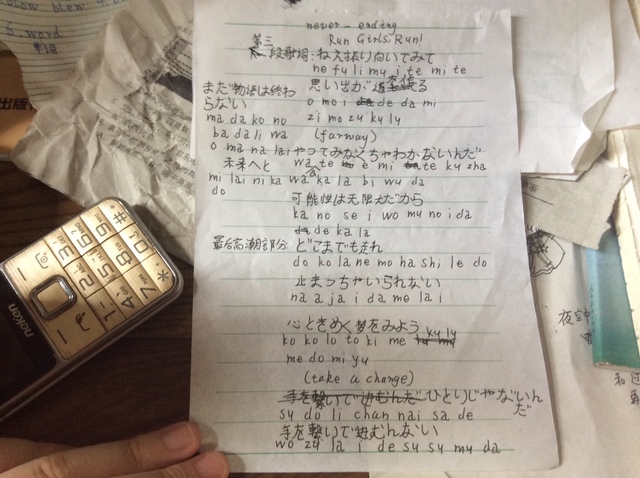 never-ending
Run Girls, Run!
第三段歌詞:ねえ振り向いてみて
ne fu li mu i te mi te
まだ物語は終わ
らない
思い出が
る
o mo i de da mi
ma da ko no
zi mo zu ku ly
ba da li wa
(farway)
o ma na lai やってみなくちゃわかないんだ
未来へと
wa te e mi te ku zha
mi lai ni ka wa ka la bi wu da
do
可能性は无限大だから
ka no se i wo mu no i da
de ka la
最高高潮部分:どこまでも走れ
do ko la ne mo ha shi le do
止まっちゃいられない
na a ja i da me la i
心ときめく夢をみよう
ko ko lo to ki me ku ly
me do mi yu
(take a change)
手を繋いで进むんだひとりじゃないん
だ
sy do li chan nai sa de
手を繋いで进むんない
wo zu la i de sy sy mu da
6. word
出版
nokan
夜空中
和